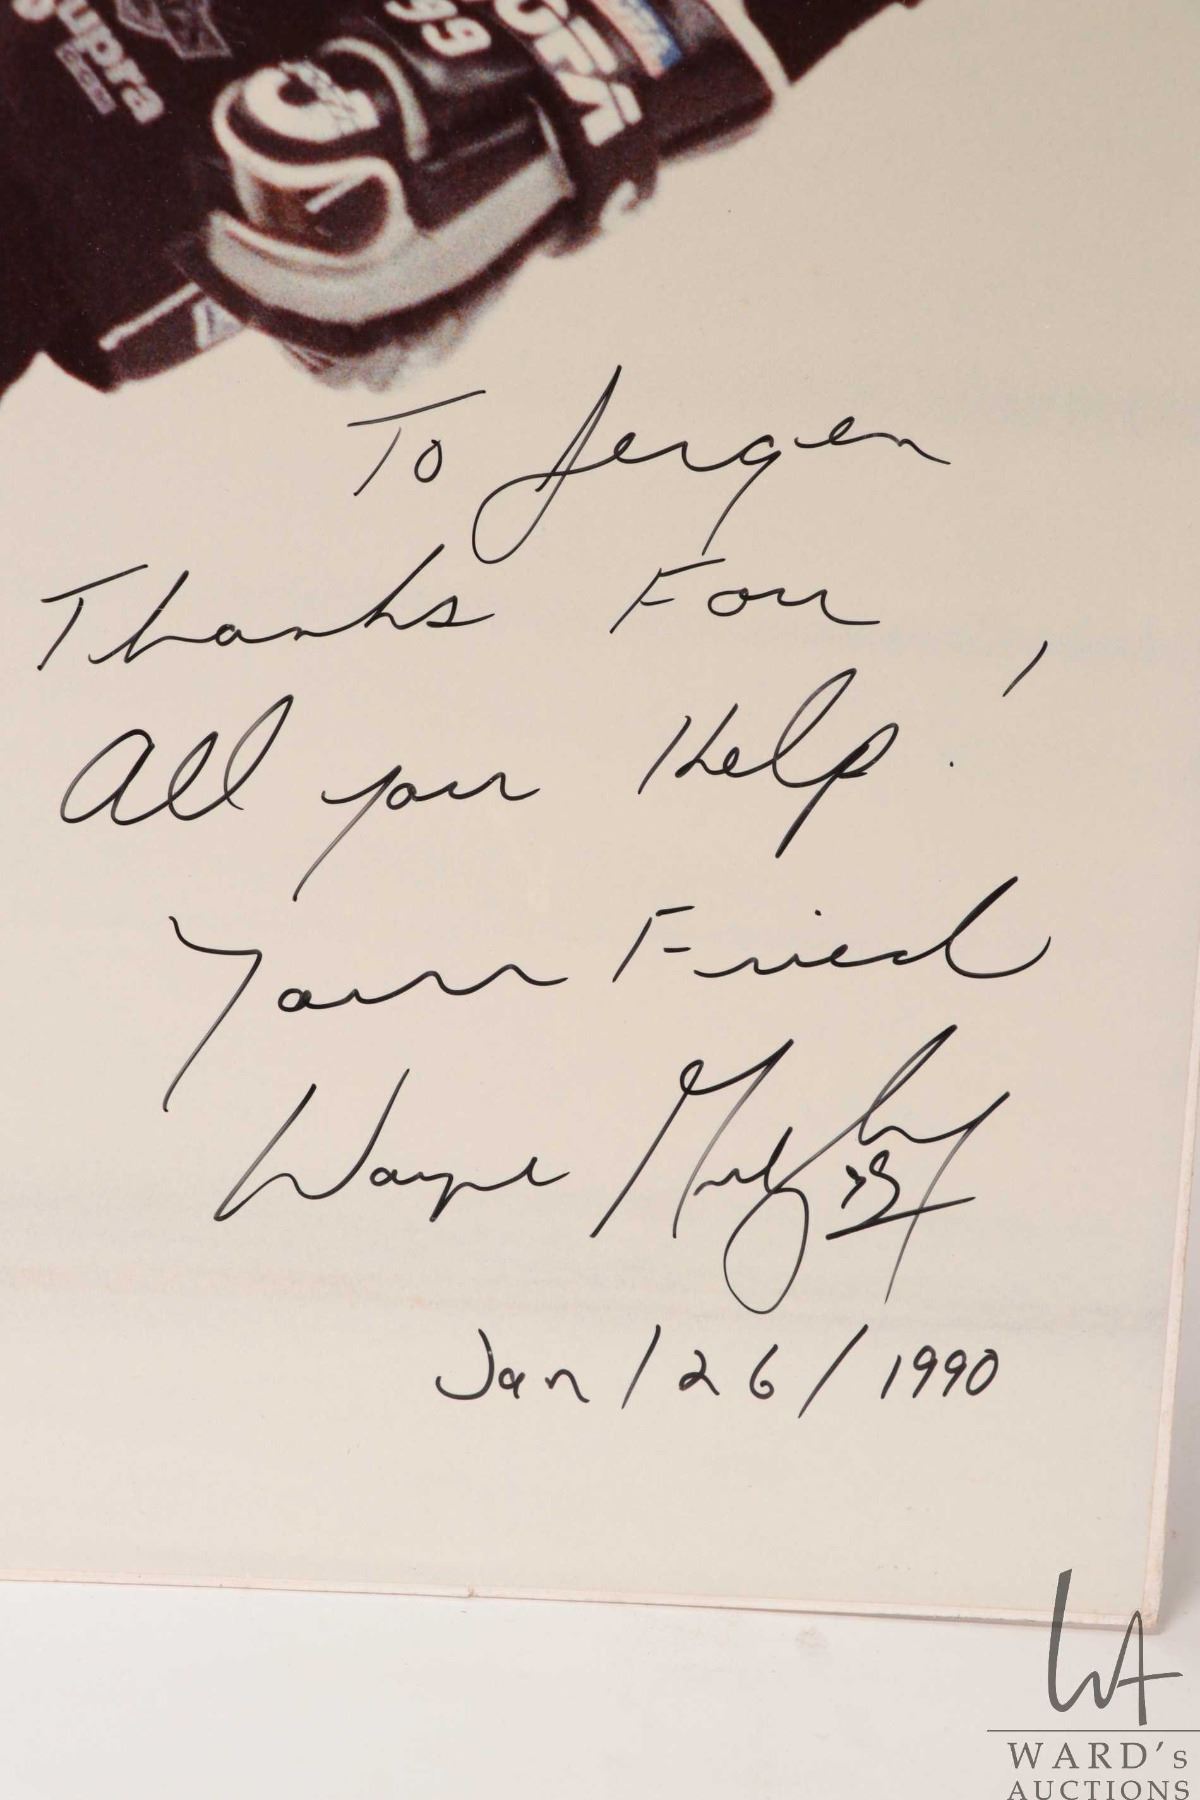 Supra
99
To Jergen
Thanks For
All your Help!
Your Friend
Wayne
Jan/26/1990
WA
WARD's
AUCTIONS